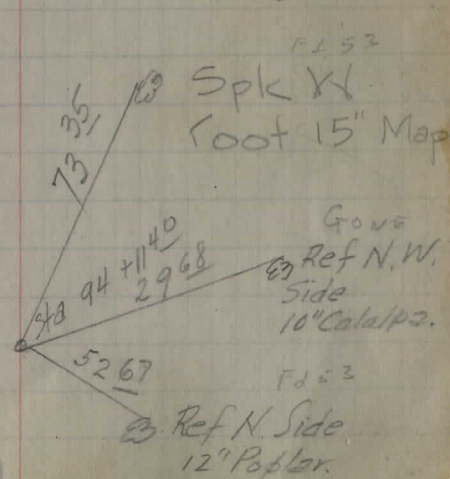 Fd 53
Spk W
root 15" Map
73 35
Gone
Sta 94 + 11 40
29 68
Ref N.W.
Side
10" Catalpa.
52 67
Ref N. Side
12" Poplar.